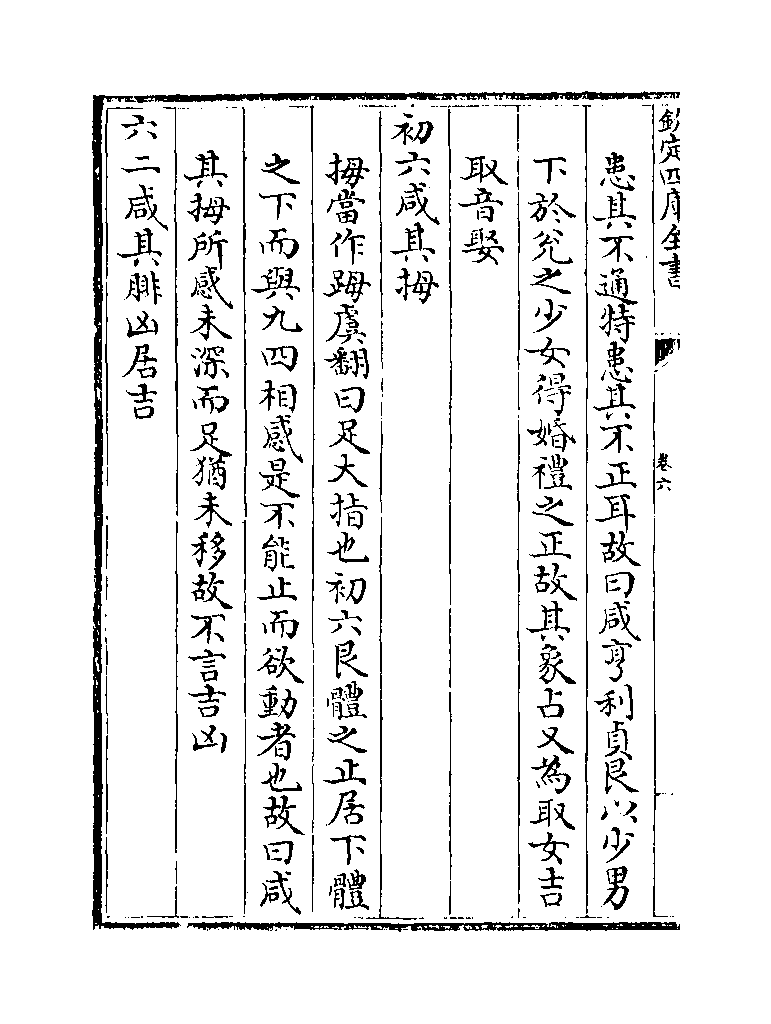 欽定四庫全書
卷六
患其不通特患其不正耳故曰咸亨利貞艮以少男
下於兊之少女得婚禮之正故其象占又為取女吉
取音娶
初六咸其拇
拇當作䟢虞翻曰足大指也初六艮體之止居下體
之下而與九四相感是不能止而欲動者也故曰咸
其拇所感未深而足猶未移故不言吉凶
六二咸其腓凶居吉